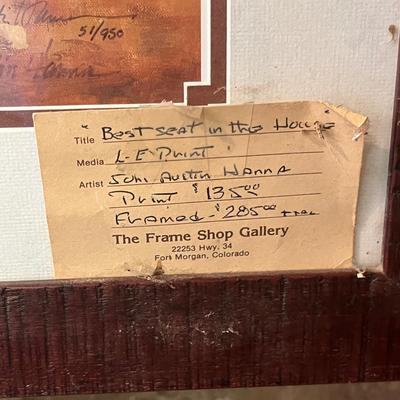 51/950
Title "Best seat in the House"
Media L-E Print
Artist John Austin Hanna
Print $135.00
Framed - $285.00
The Frame Shop Gallery
22253 Hwy. 34
Fort Morgan, Colorado